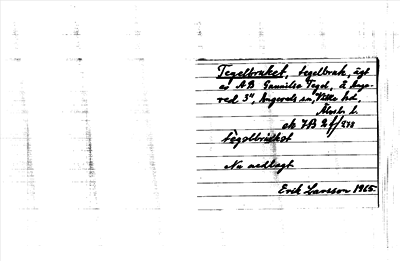 Tegelbruket, tegelbruk, ägt
av AB Gunnilse Tegel, å Ange-
red 3", Angereds sn, Vättle hd,
Älvsb. l.
ek 7B 2f/278
Tegelbruket
Nu nedlagt
Erik Larsson 1965